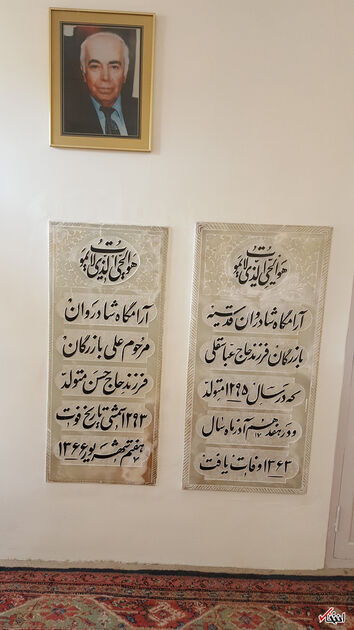 هو الحی الذی لا یموت
آرامگاه شادروان قدسیه
بازرگان فرزند حاج عباسقلی
که در سال ۱۲۹۵ متولد
و در هفدهم آذر ماه سال
۱۳۶۳ وفات یافت
هو الحی الذی لا یموت
آرامگاه شادروان
مرحوم علی بازرگان
فرزند حاج حسن متولد
۱۲۹۳ شمسی تاریخ فوت
هفتم شهریور ۱۳۶۶